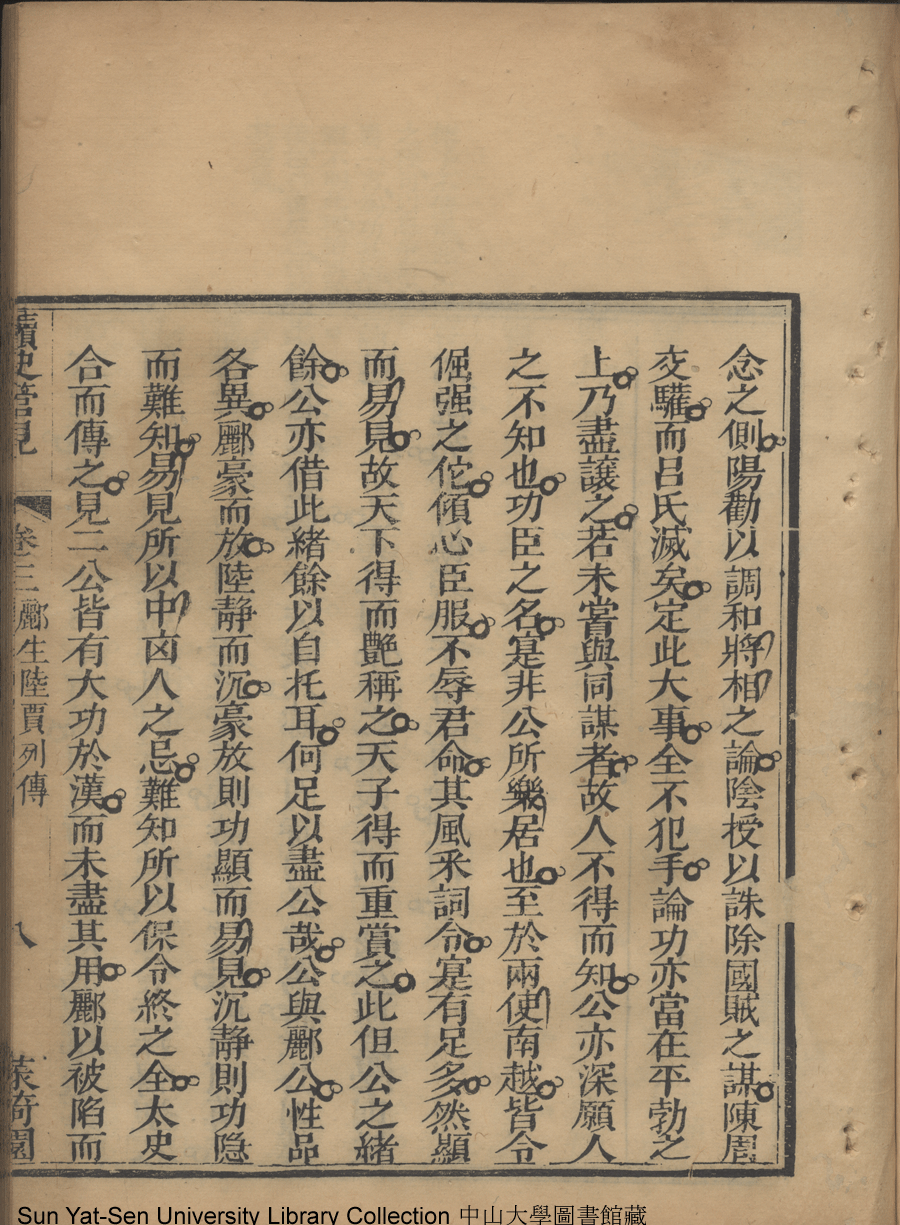 念之側陽勸以調和將相之論陰授以誅除國賊之謀陳周
交驩而呂氏滅矣定此大事全不犯手論功亦當在平勃之
上乃盡讓之若未嘗與同謀者故人不得而知公亦深願人
之不知也功臣之名寔非公所樂居也至於兩使南越皆令
倔强之佗傾心臣服不辱君命其風釆詞令寔有足多然顯
而易見故天下得而艷稱之天子得而重賞之此但公之緒
餘公亦借此緒餘以自托耳何足以盡公哉公與酈公性品
各異酈豪而放陸静而沉豪放則功顯而易見沉静則功隐
而難知易見所以中㐫人之忌難知所以保令終之全太史
合而傳之見二公皆有大功於漢而未盡其用酈以被陷而
讀史管見 卷三 酈生陸賈列傳 八 菉猗園
Sun Yat-Sen University Library Collection 中山大學圖書館藏